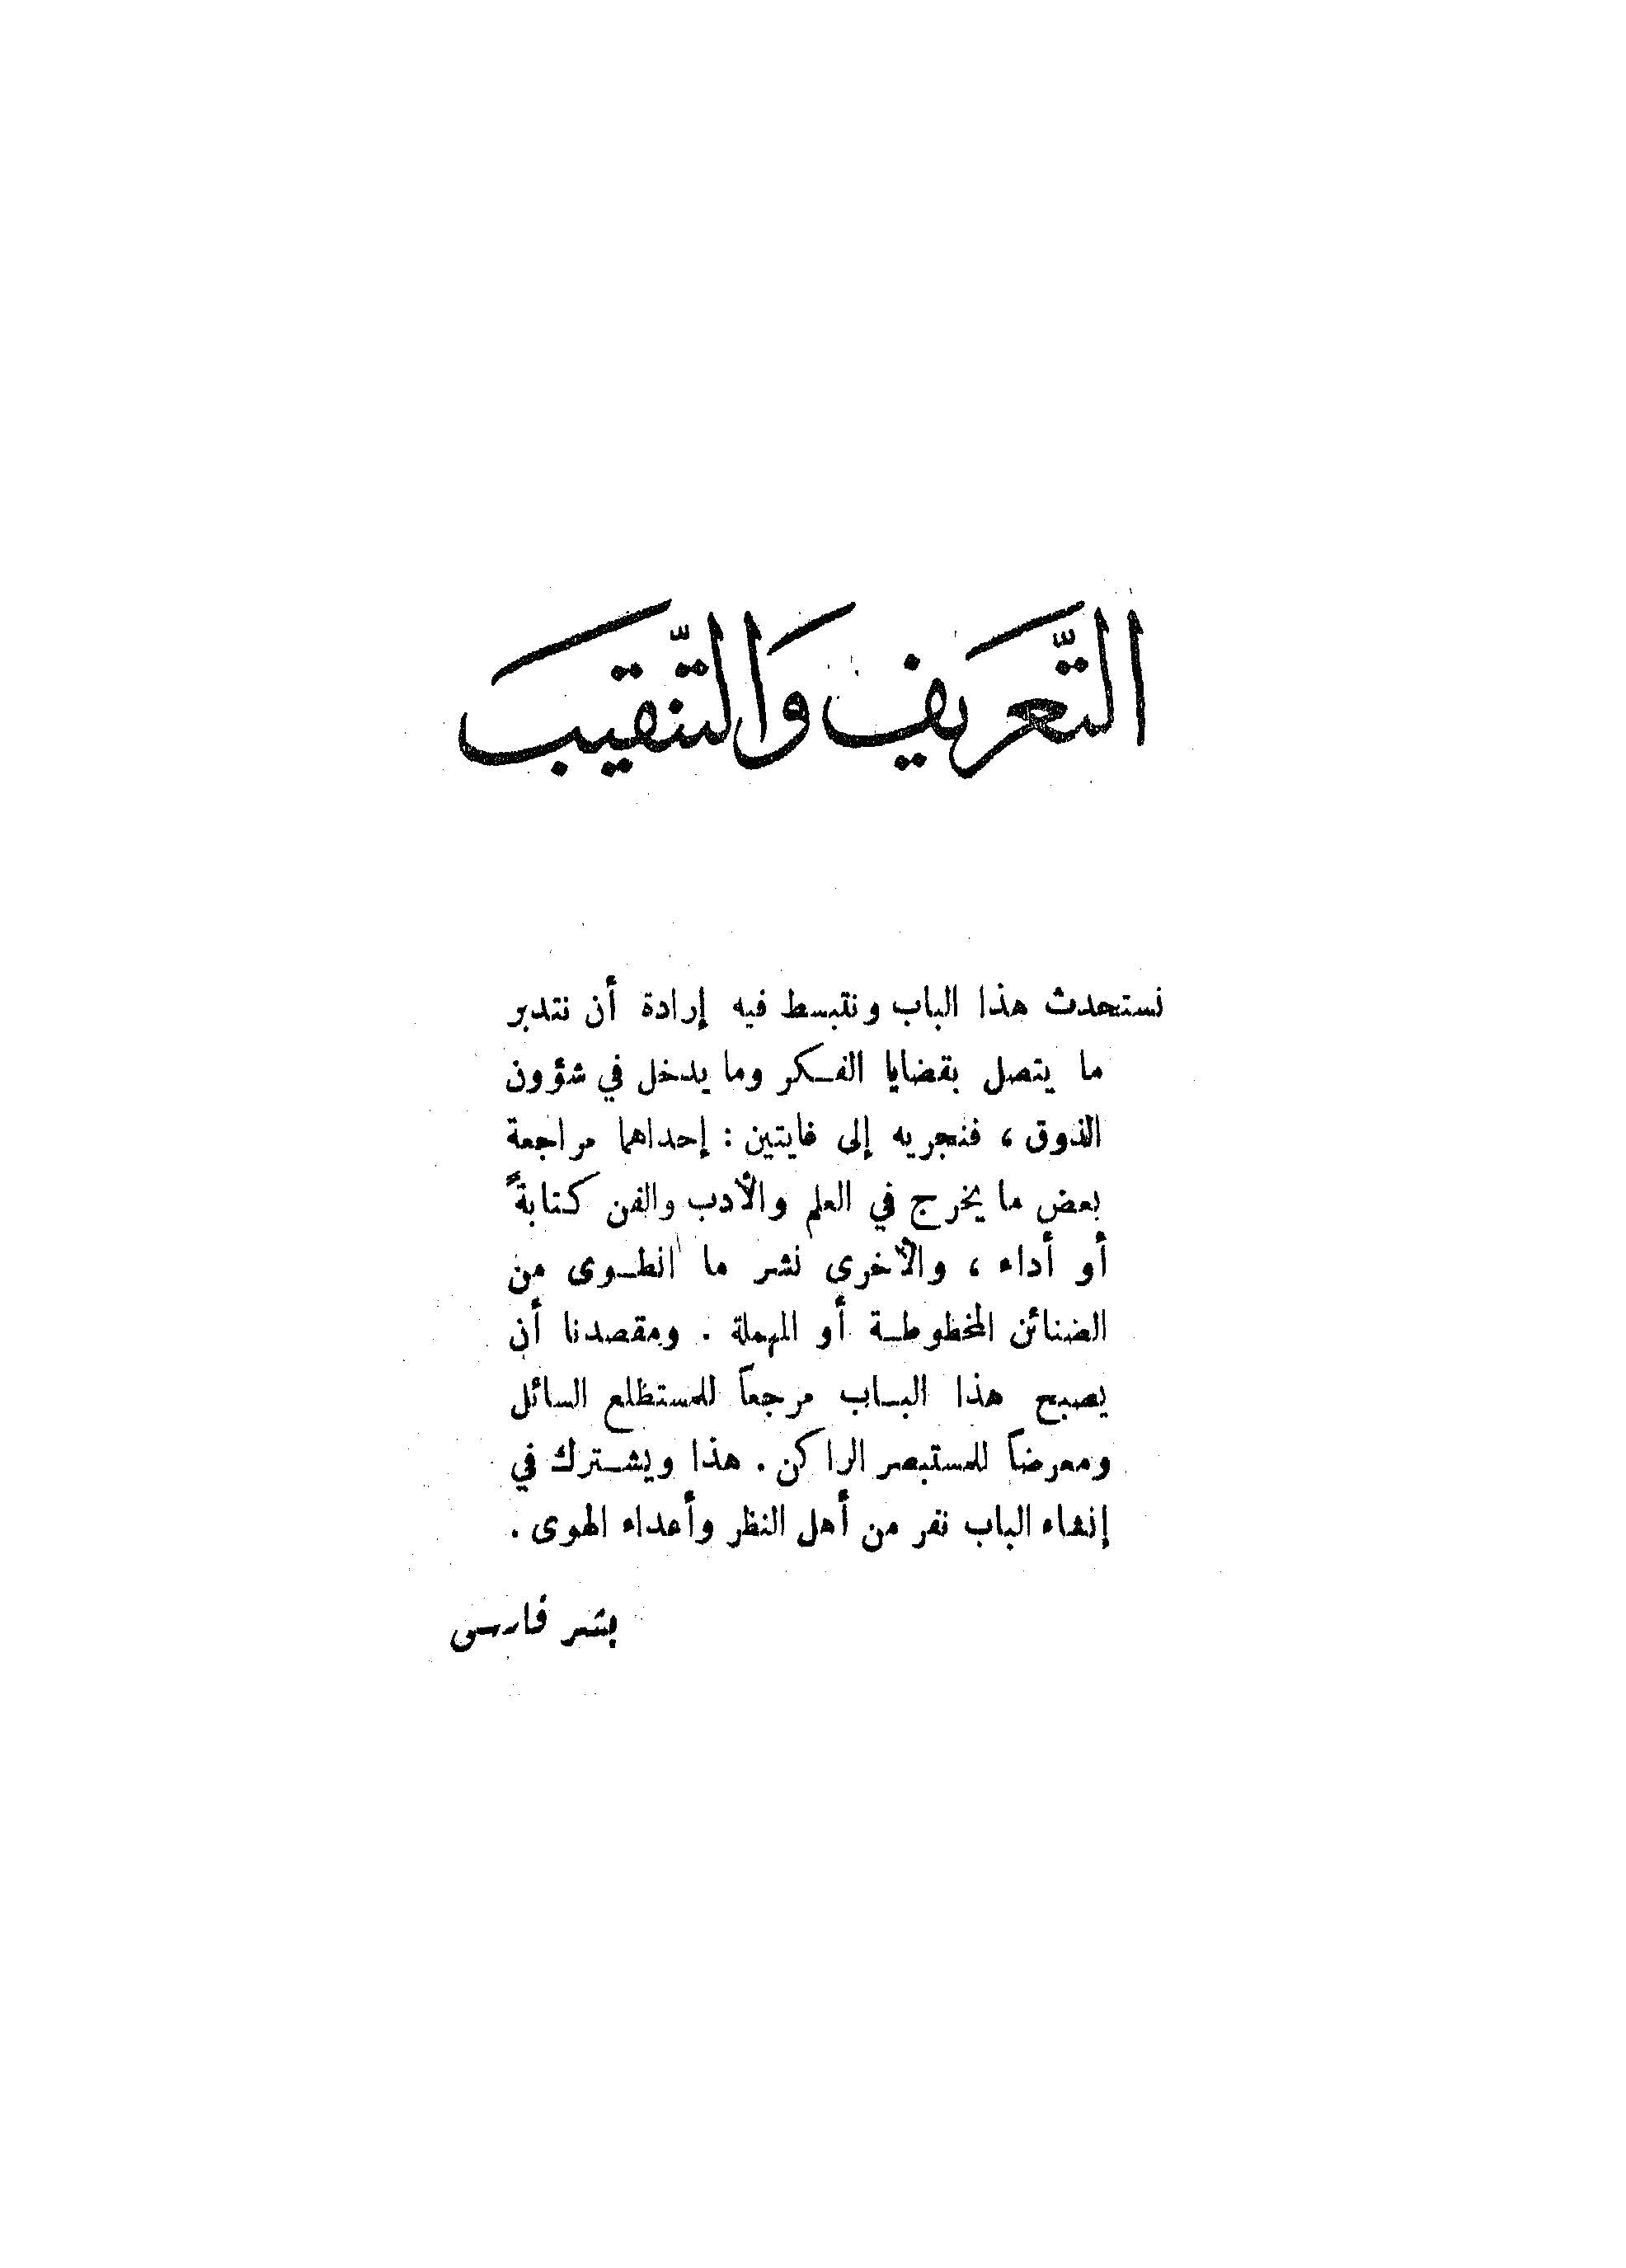 التَّعَريفِ وَالتَّنقيبَ
نستحدث هذا الباب ونتبسط فيه إرادة أن نتدبر
ما يتصل بقضايا الفكر وما يدخل في شؤون
الذوق ، فنجريه إلى غايتين : إحداهما مراجعة
بعض ما يخرج في العلم والأدب والفن كتابةً
أو أداء ، والأخرى نشر ما انطوى من
الضنائن المخطوطة أو المهملة . ومقصدنا أن
يصبح هذا الباب مرجعاً للمستطلع السائل
ومعرضاً للمستبصر الراكن . هذا ويشترك في
إنشاء الباب نفر من أهل النظر وأعداء الهوى .
بشر فارس